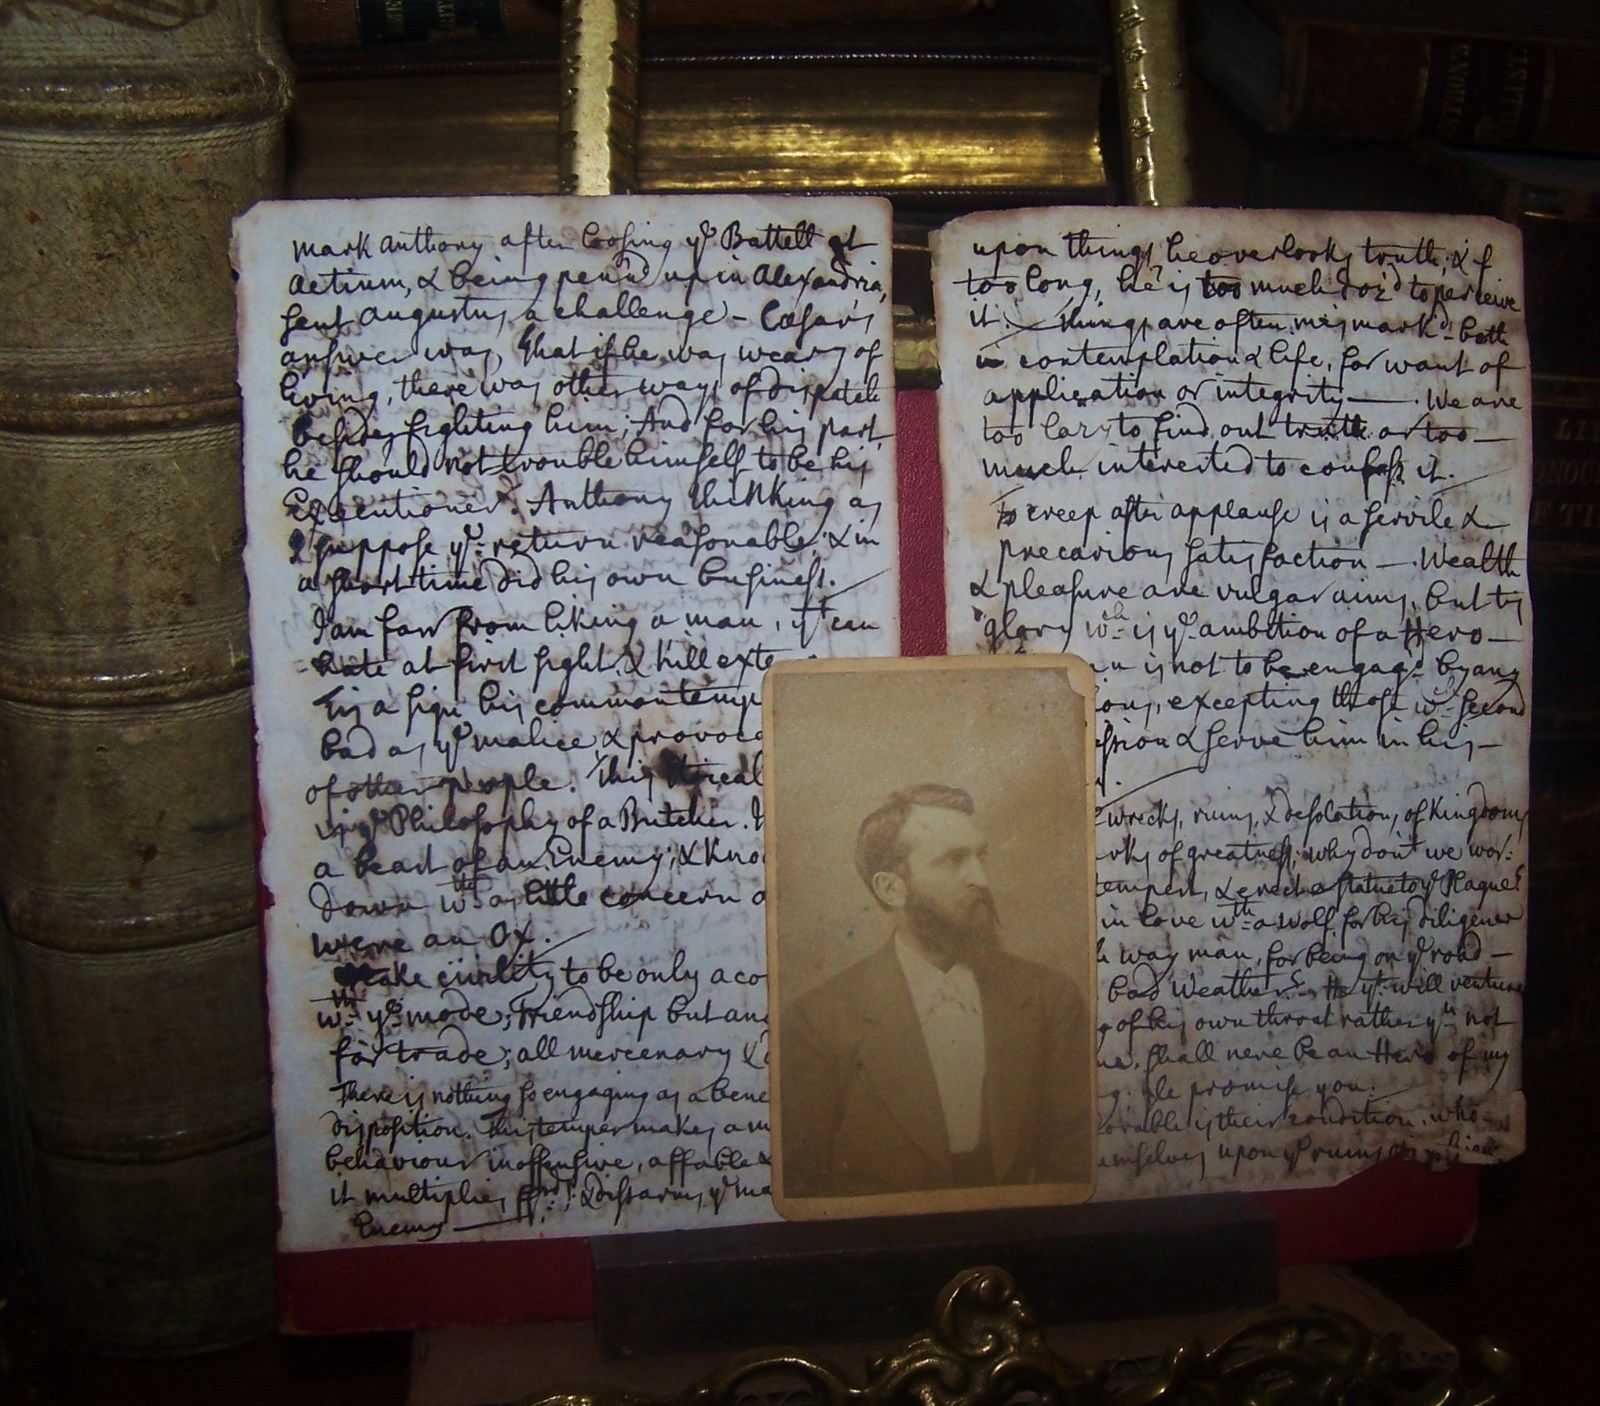 Mark Anthony after loosing yᵉ Battell at
Actium, & being penn'd up in Alexandria,
sent Augustus a challenge – Cæsar's
answer was, that if he was weary of
living, there was other ways of dispatch
besides fighting him; And for his part,
he should not trouble himself to be his
Executioner. Anthony thinking as
I suppose yᵉ return reasonable; & in
a short time did his own business.
I am far from liking a man, yᵗ can
hate at first sight & kill
Tis a sign his common
bad as yᵉ malice &
of other people. This
is yᵉ Philosophy of a Butcher.
a head of an Enemy; &
Down wᵗʰ as little concern
were an Ox.
Make civility to be only a
wᵗʰ yᵉ mode; Friendship but
for trade; all mercenary &
There is nothing so engaging as a
disposition. This temper makes a
behaviour inoffensive, affable &
it multiplies & disarms yᵉ
Enemy
upon things he overlooks truth, & if
too long, he is too much doz'd to perceive
it. Things are often mismark'd both
in contemplation & life, for want of
application or integrity —. We are
too lazy to find out truth or too
much interested to confess it.
To creep after applause is a servile &
precarious satisfaction —. Wealth
& pleasure are vulgar aims, but tis
glory wᶜʰ is yᵉ ambition of a Hero –
is not to be engag'd by any
excepting those wᶜʰ second
& serve him in his –
wrecks, ruins, & desolations of Kingdoms
of greatness; why don't we wor:
& erect a statue to yᵉ Plague?
in love wᵗʰ a wolf for his diligence
way man, for being on yᵉ road –
bad weather? He yᵗ will venture
of his own throat rather yⁿ not
shall nere be an Hero of my
Ile promise you.
is their condition, who
upon yᵉ ruins